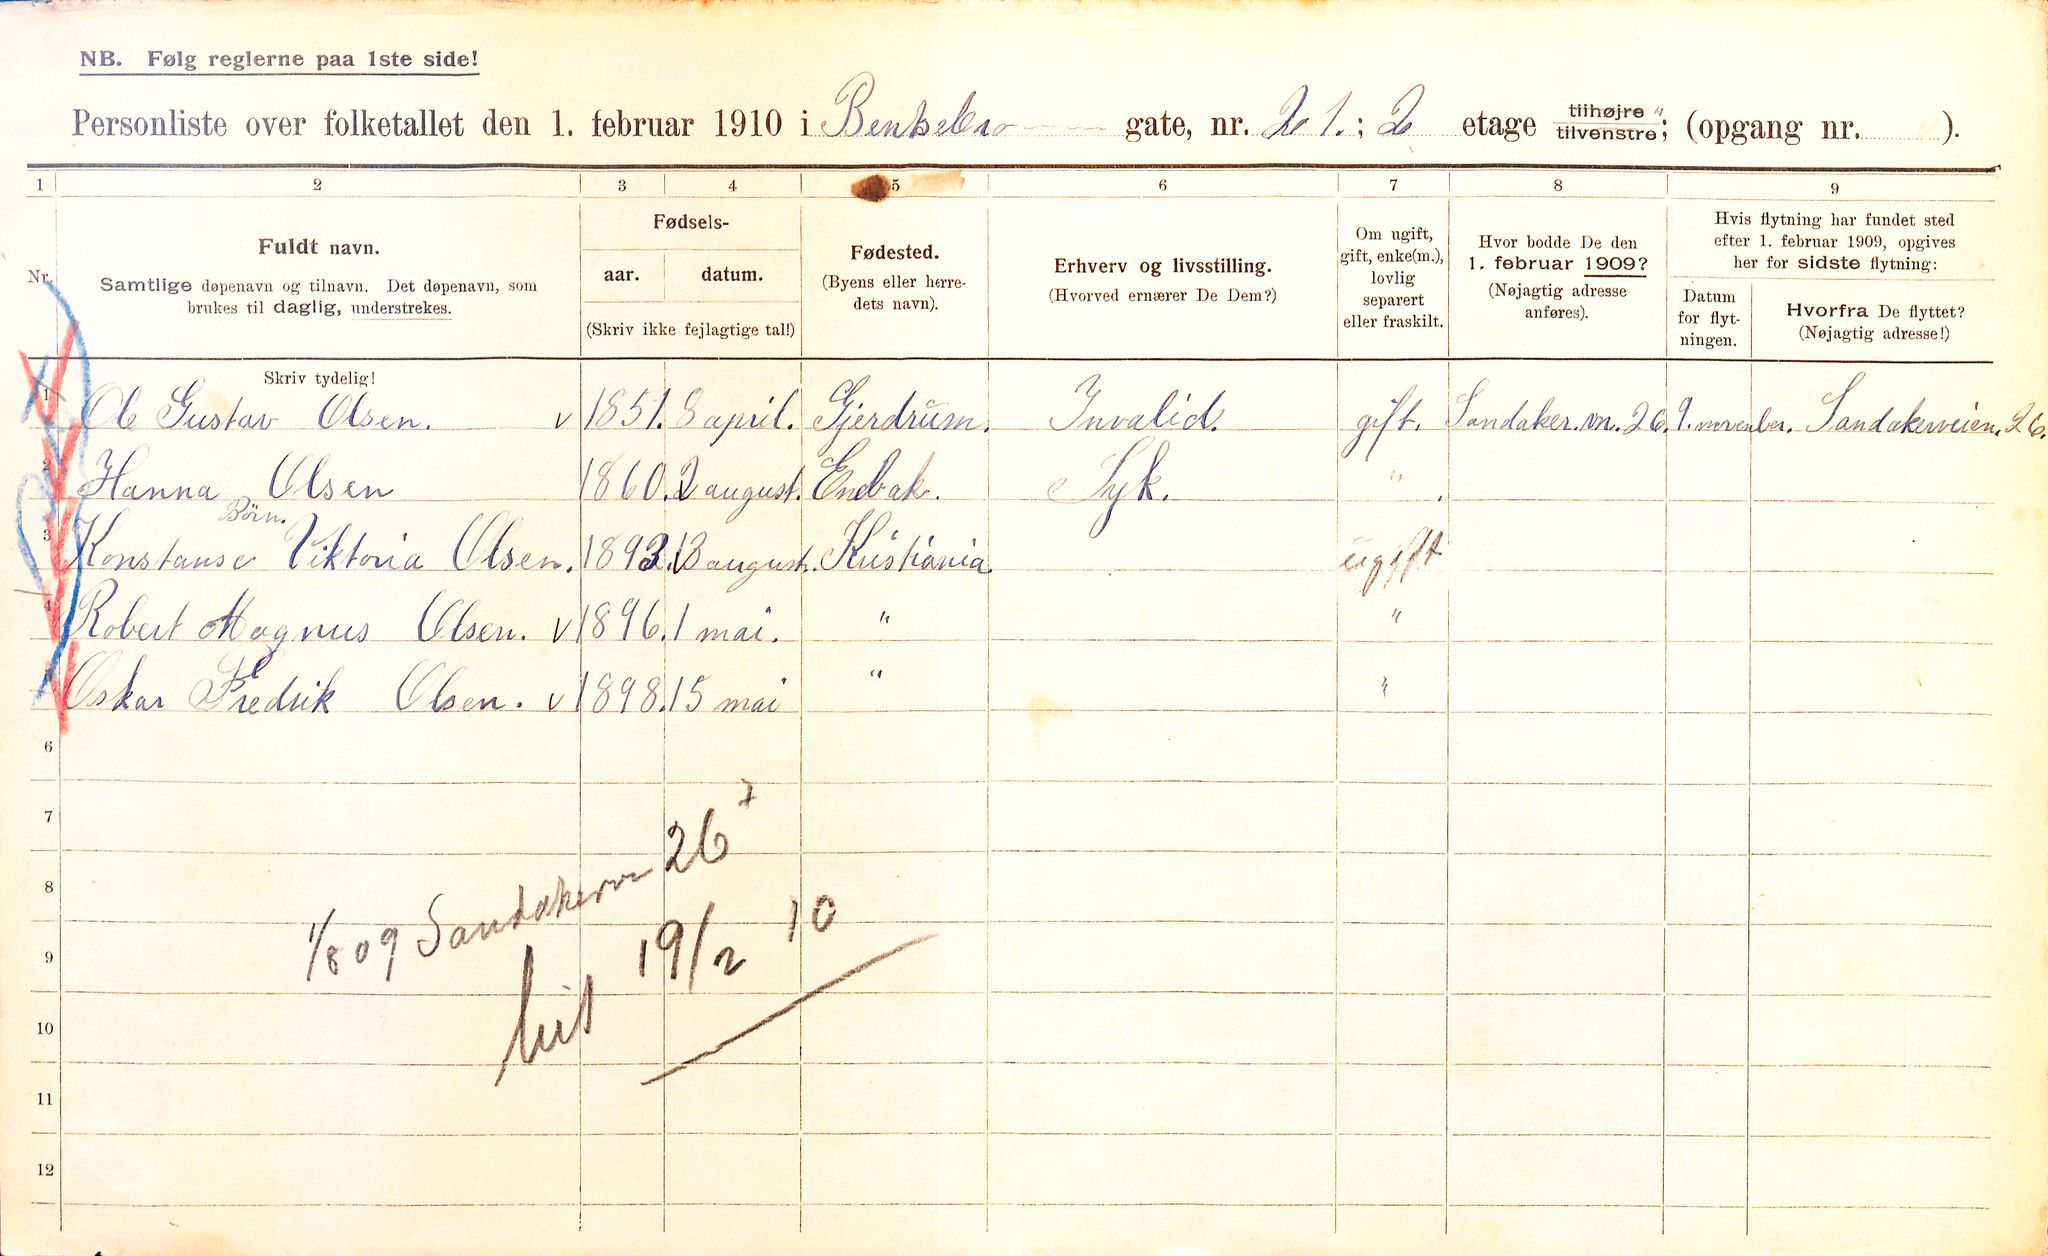 NB. Følg reglerne paa 1ste side!
Personliste over folketallet den 1. februar 1910 i Bentsebro gate, nr. 21.; 2 etage tilhøjre " tilvenstre; (opgang nr. ).
1 2 3 4 5 6 7 8 9
Nr.
Fuldt navn.
Samtlige døpenavn og tilnavn. Det døpenavn, som
brukes til daglig, understrekes.
Fødsels-
aar. datum.
(Skriv ikke fejlagtige tal!)
Fødested.
(Byens eller herre-
dets navn).
Erhverv og livsstilling.
(Hvorved ernærer De Dem?)
Om ugift,
gift, enke(m.),
lovlig
separert
eller fraskilt.
Hvor bodde De den
1. februar 1909?
(Nøjagtig adresse
anføres).
Hvis flytning har fundet sted
efter 1. februar 1909, opgives
her for sidste flytning:
Datum
for flyt-
ningen.
Hvorfra De flyttet?
(Nøjagtig adresse!)
Skriv tydelig!
1 Ole Gustav Olsen. v 1851. 8 april. Gjerdrum. Invalid. gift. Sandaker.vn. 26. 9. november. Sandakerveien. 26.
2 Hanna Olsen 1860. 2 august. Enebak. Syk. " .
Børn.
3 Konstanse Viktoria Olsen. 1893. 13 august. Kristiania. ugift
4 Robert Magnus Olsen. v 1896. 1 mai. " "
Oskar Fredrik Olsen. v 1898. 15 mai " "
6
7
8
9
10
11
12
1/8 09 Sandakervn 26
19/2 10